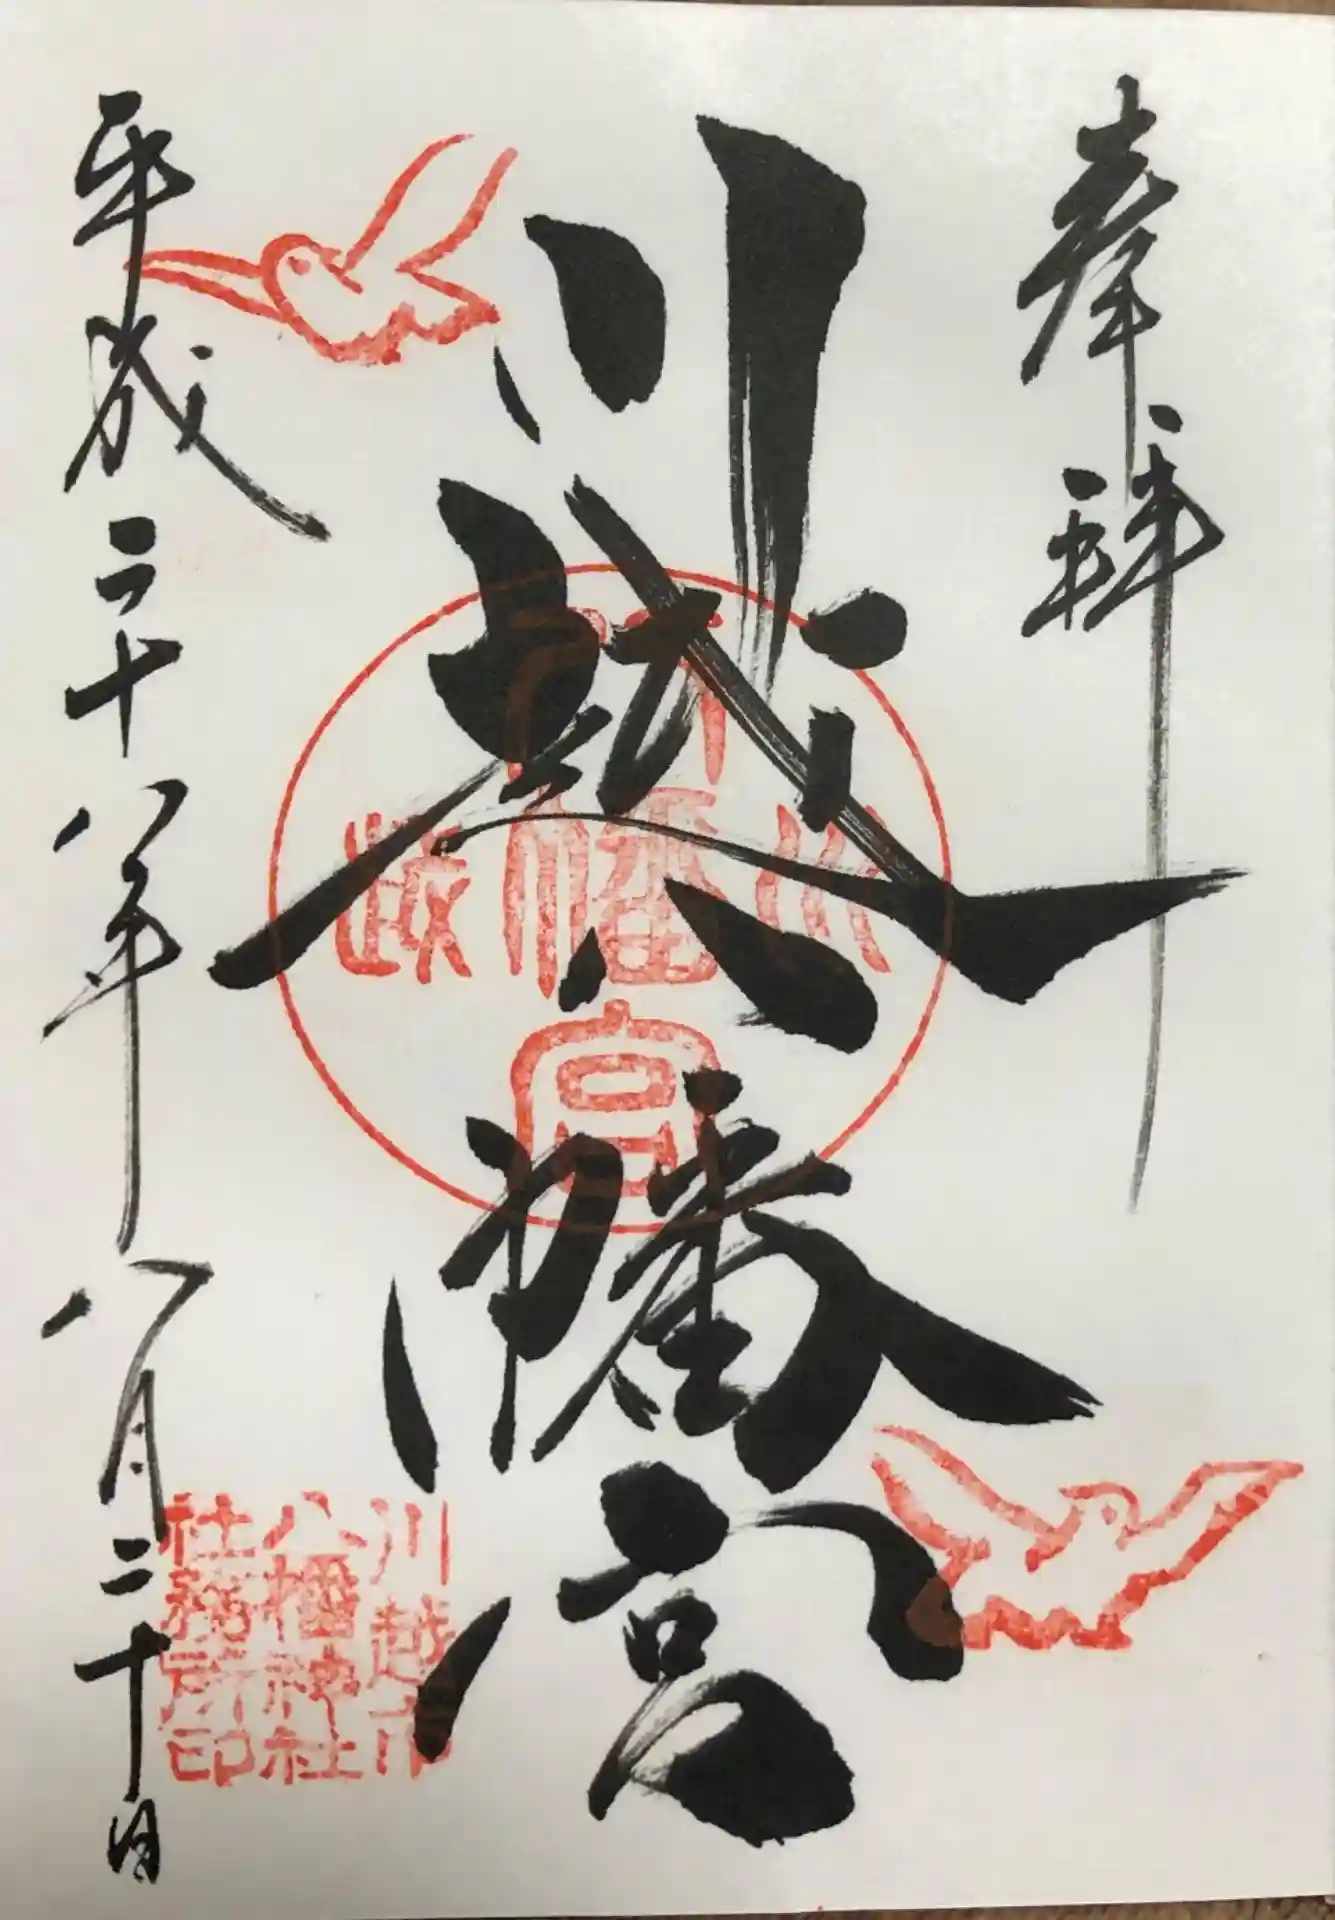 奉拝
川越八幡宮
平成二十八年八月二十日
川越
八幡宮
川越市
八幡神社
社務所印